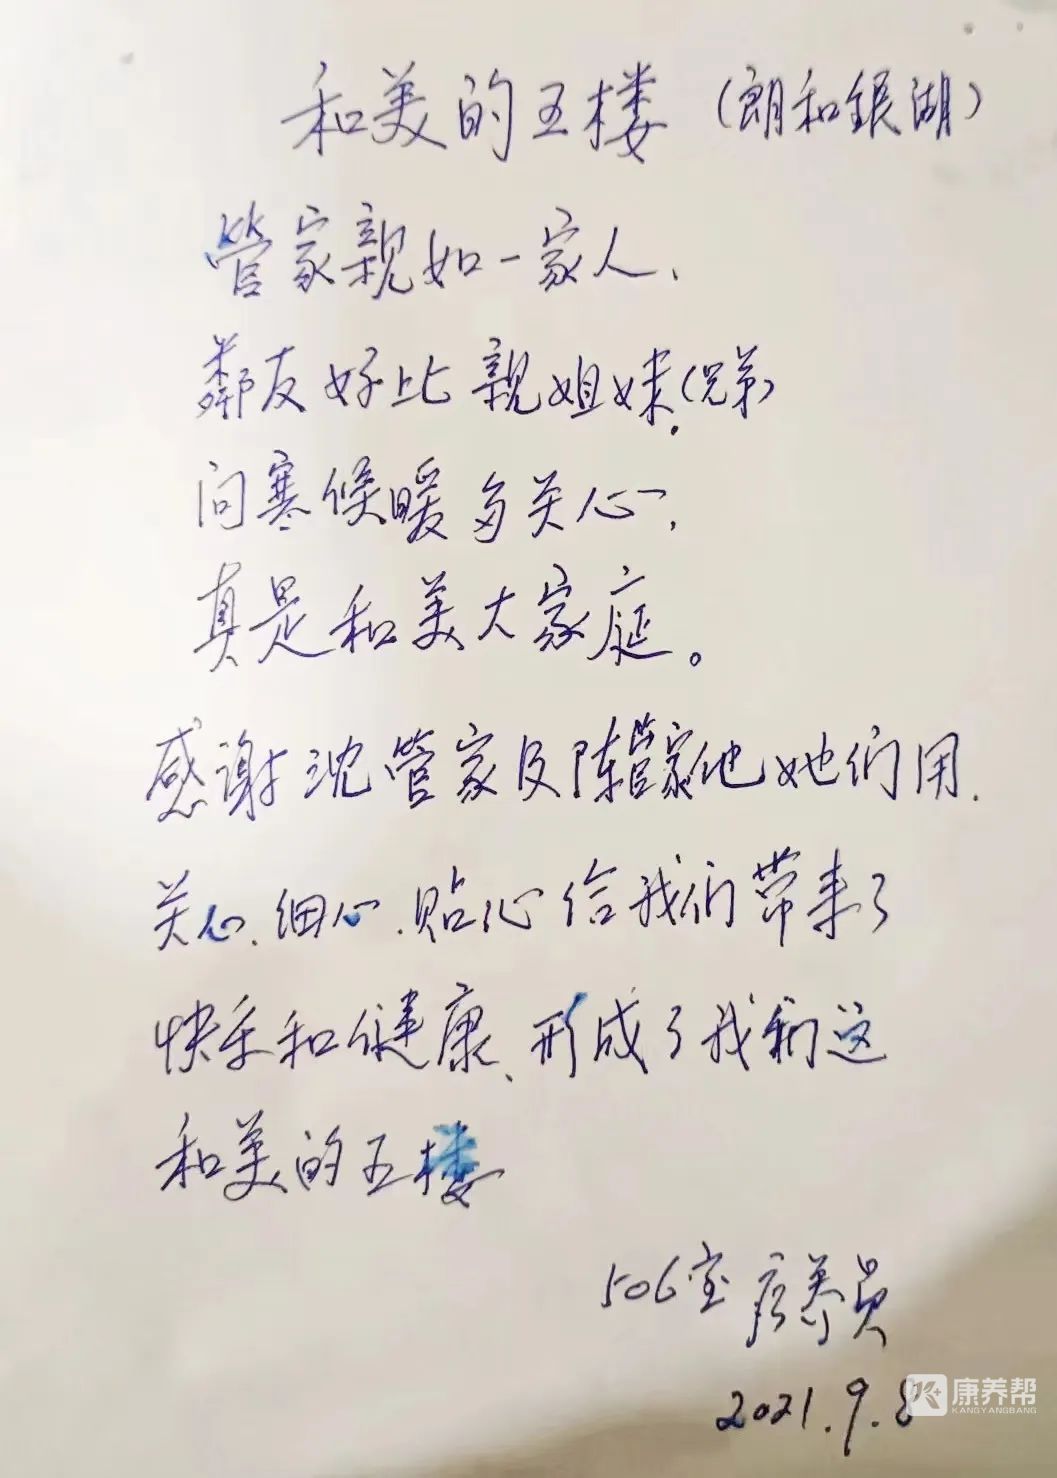 和美的五楼（朗和银湖）
管家親如一家人、
鄰友好比親姐妹.(兄弟)
问寒候暖多关心,
真是和美大家庭。
感谢沈管家及陈管家他她们用.
关心、细心、贴心给我们带来了
快乐和健康、形成了我们这
和美的五楼
506室 疗养员
2021.9.8
康养帮
KANGYANGBANG